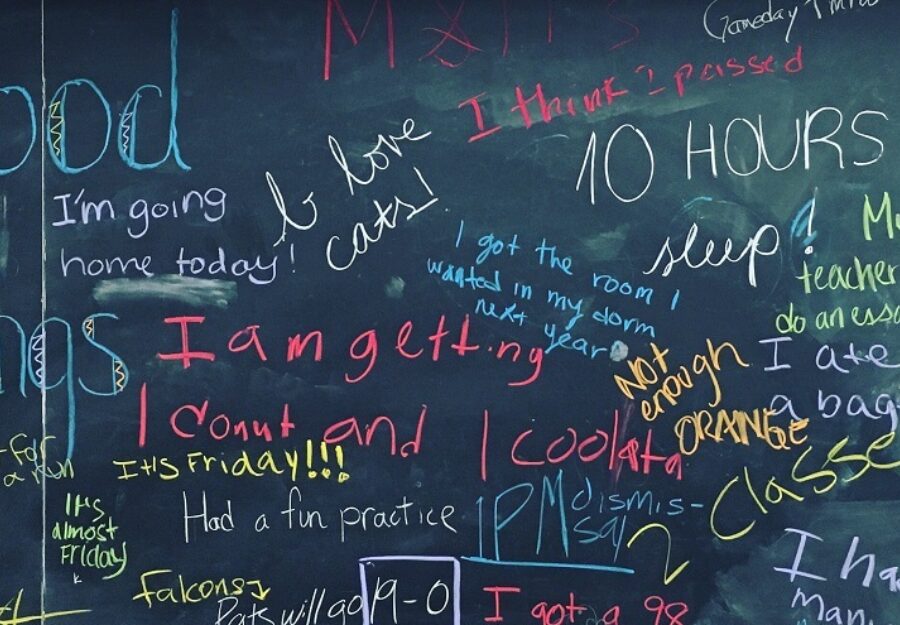 Gameday
I think I passed
ood
10 HOURS
sleep!
I love
cats!
I'm going
home today!
I got the room I
wanted in my dorm
next year
teacher
do an essa
ngs
I am getting
1 conut and
1 coolata
Not
enough
ORANGE
I ate
a bag
For
a run
It's Friday!!!
It's
almost
Friday
Had a fun practice
1PM dismis-
sal
2 Classe
falcons
Pats will go 19-0
I got a 98
I ha
man